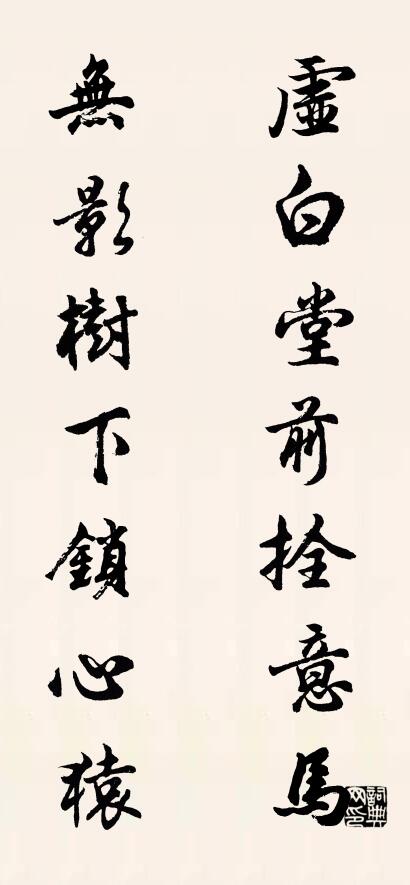 虛白堂前拴意馬
無影樹下鎖心猿
詞典網印